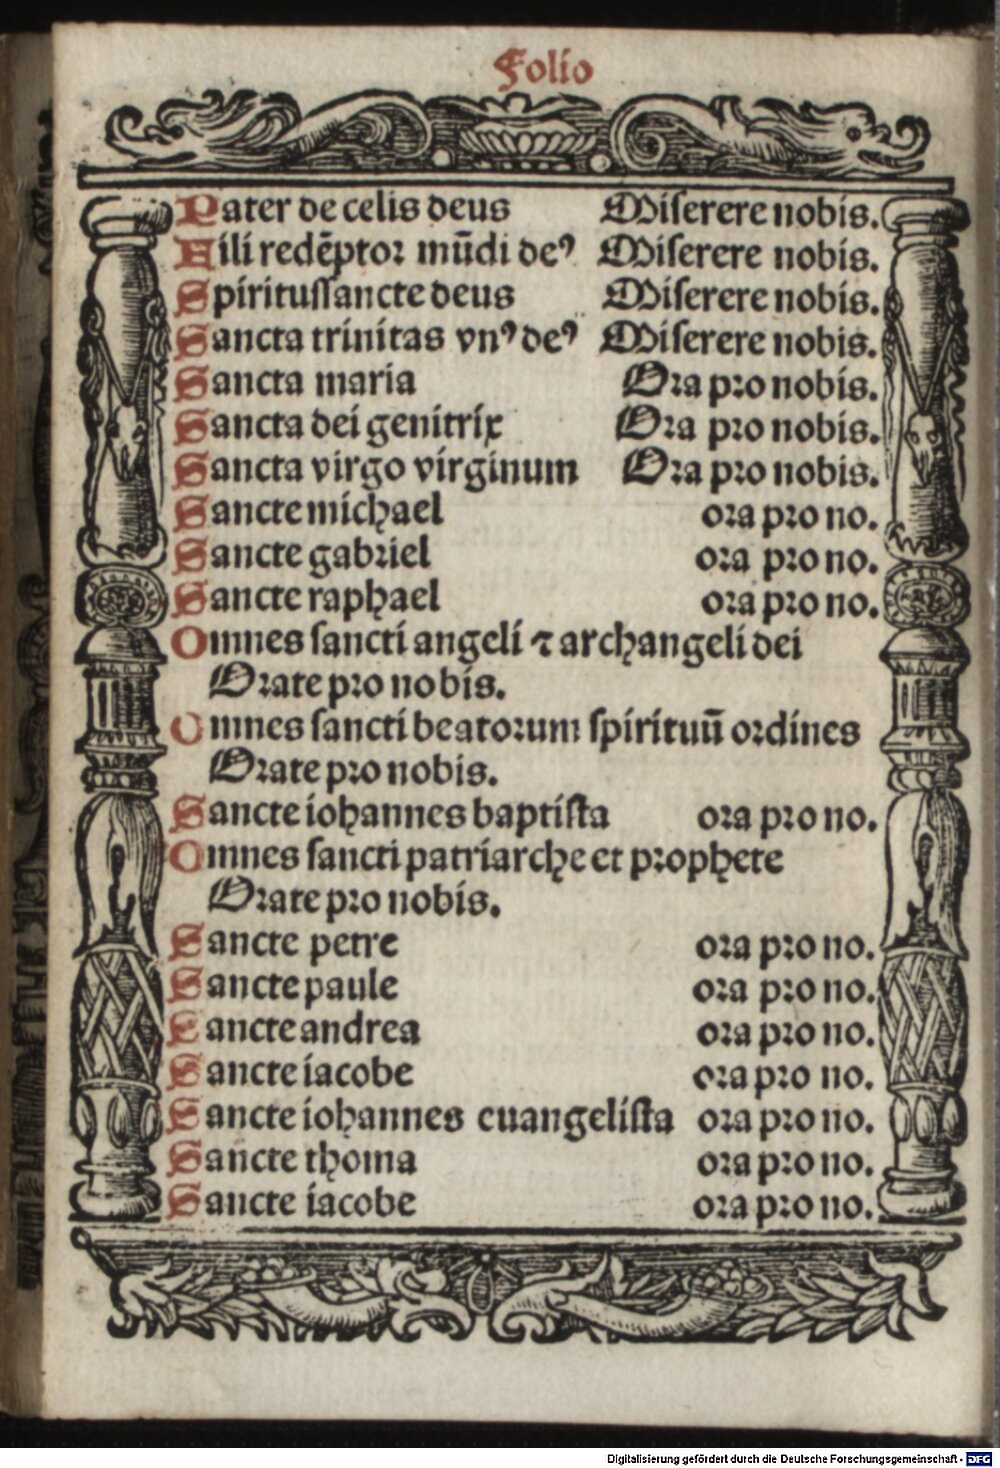 Folio
Pater de celis deus Miserere nobis.
Fili redēptor mūdi deꝰ Miserere nobis.
Spiritussancte deus Miserere nobis.
Sancta trinitas vnꝰ deꝰ Miserere nobis.
Sancta maria Ora pro nobis.
Sancta dei genitrix Ora pro nobis.
Sancta virgo virginum Ora pro nobis.
Sancte michael ora pro no.
Sancte gabriel ora pro no.
Sancte raphael ora pro no.
Omnes sancti angeli ⁊ archangeli dei
Orate pro nobis.
Omnes sancti beatorum spirituū ordines
Orate pro nobis.
Sancte iohannes baptista ora pro no.
Omnes sancti patriarche et prophete
Orate pro nobis.
Sancte petre ora pro no.
Sancte paule ora pro no.
Sancte andrea ora pro no.
Sancte iacobe ora pro no.
Sancte iohannes euangelista ora pro no.
Sancte thoma ora pro no.
Sancte iacobe ora pro no.
Digitalisierung gefördert durch die Deutsche Forschungsgemeinschaft - DFG